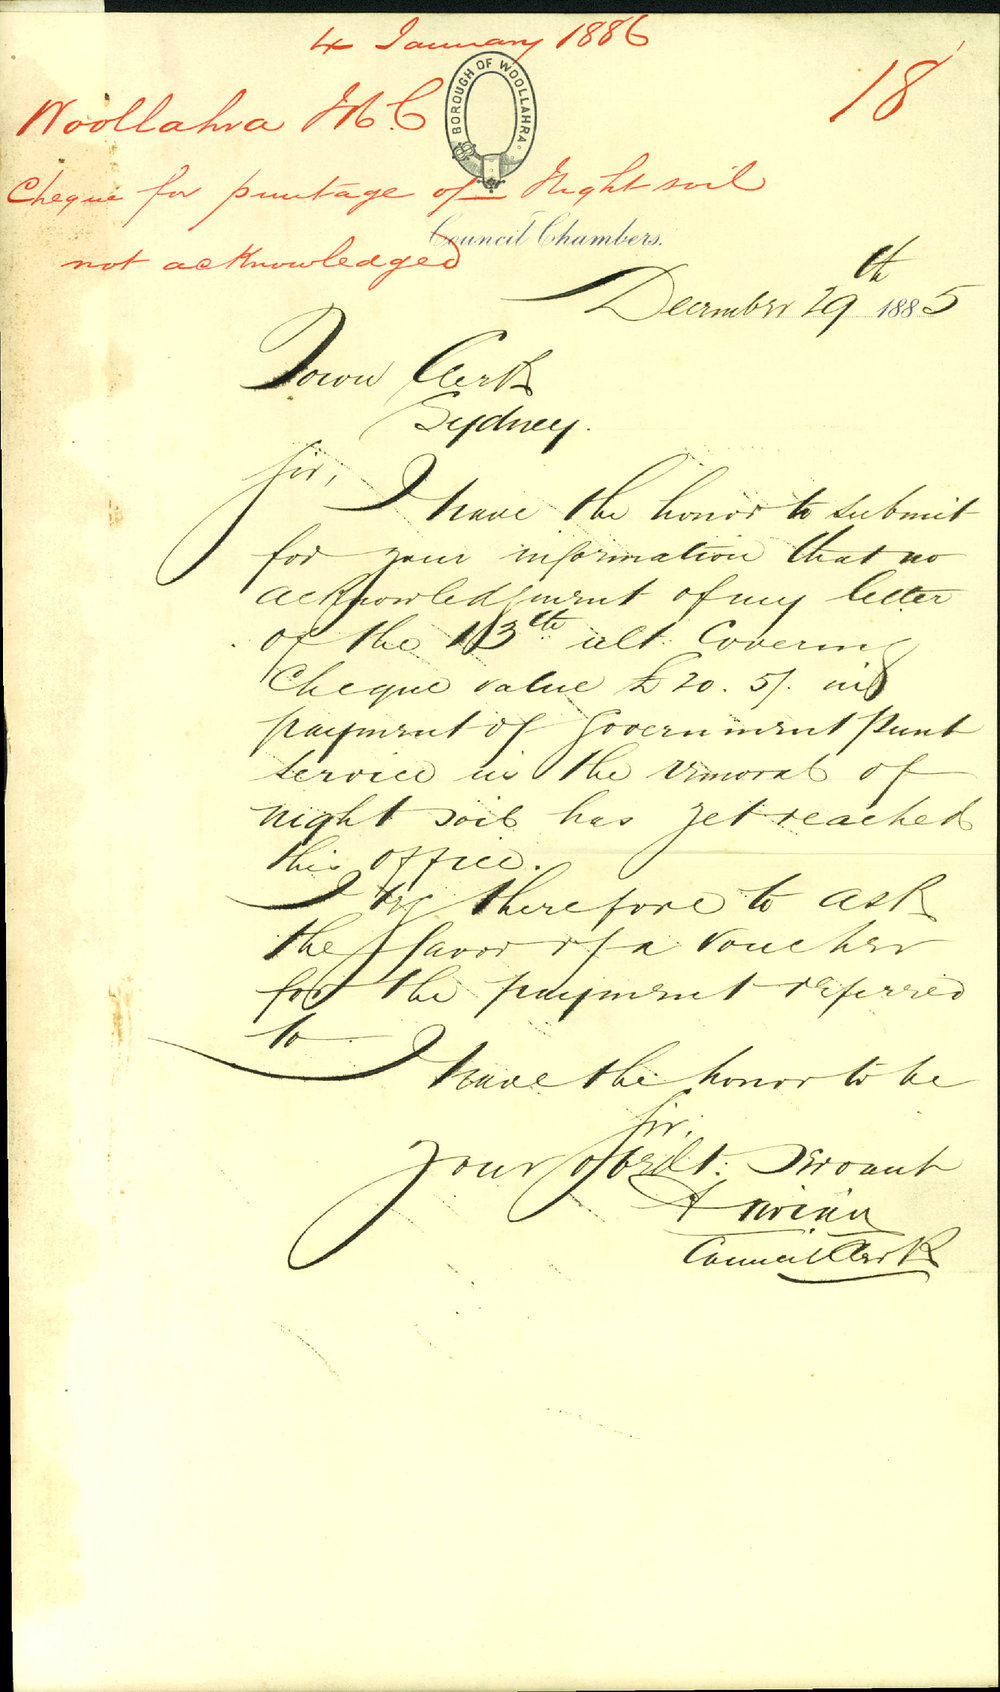 4 January 1886
18
Woollahra M.C
BOROUGH OF WOOLLAHRA.
Cheque for puntage of Night soil
not acknowledged
Council Chambers.
December 29th 1885
Town Clerk
Sydney.
Sir,
I have the honor to submit
for your information that no
acknowledgment of my letter
of the 13th ult. Covering
Cheque value £20. 5/. in
payment of Government Punt
service in the removal of
night soil has yet reached
this office.
I beg therefore to ask
the favor of a voucher
for the payment referred
to.
I have the honor to be
Sir,
Your obedt. Servant
Council Clerk